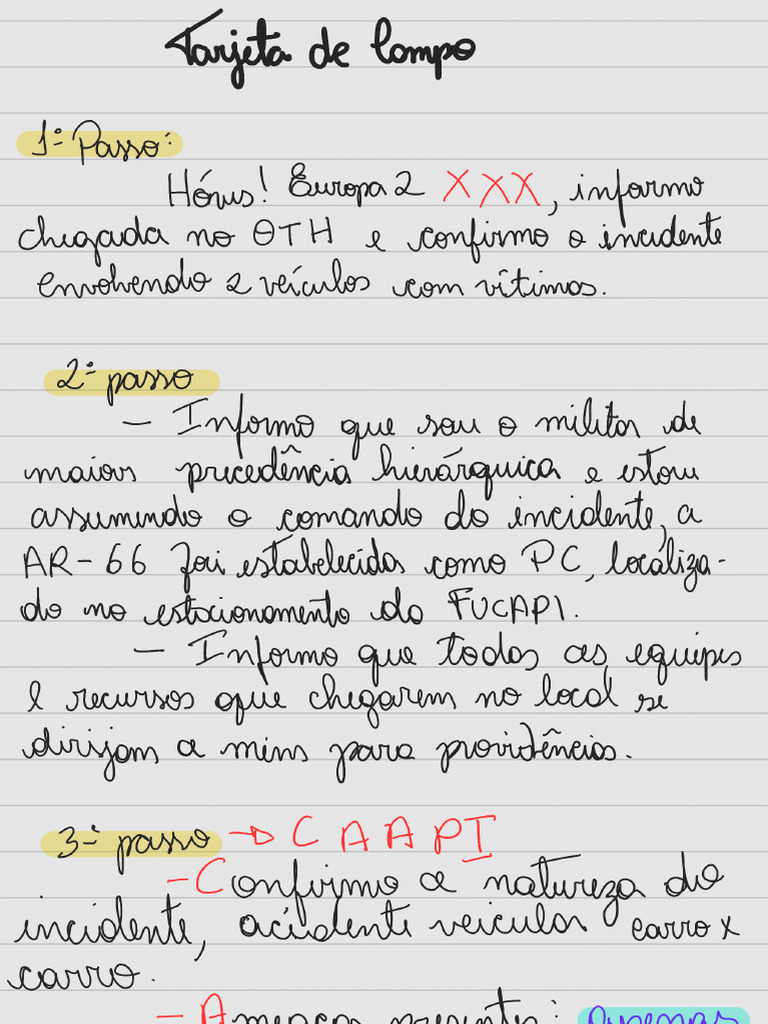 Tarjeta de Campo
1º Passo:
Hórus! Europa 2 XXX, informo
chegada no OTH e confirmo o incidente
envolvendo 2 veículos com vítimas.
2º passo
- Informo que sou o militar de
maior precedência hierárquica e estou
assumindo o comando do incidente, a
AR-66 foi estabelecida como PC, localiza-
do no estacionamento da FUCAPI.
- Informo que todas as equipes
e recursos que chegarem no local se
dirijam a mim para providências.
3º passo → CAAPI
- Confirmo a natureza do
incidente, acidente veicular carro x
carro.
- Ameaças presentes: Apenas